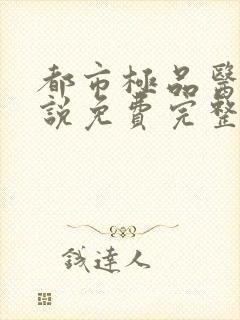 都市極品醫
說免費完整
錢達人